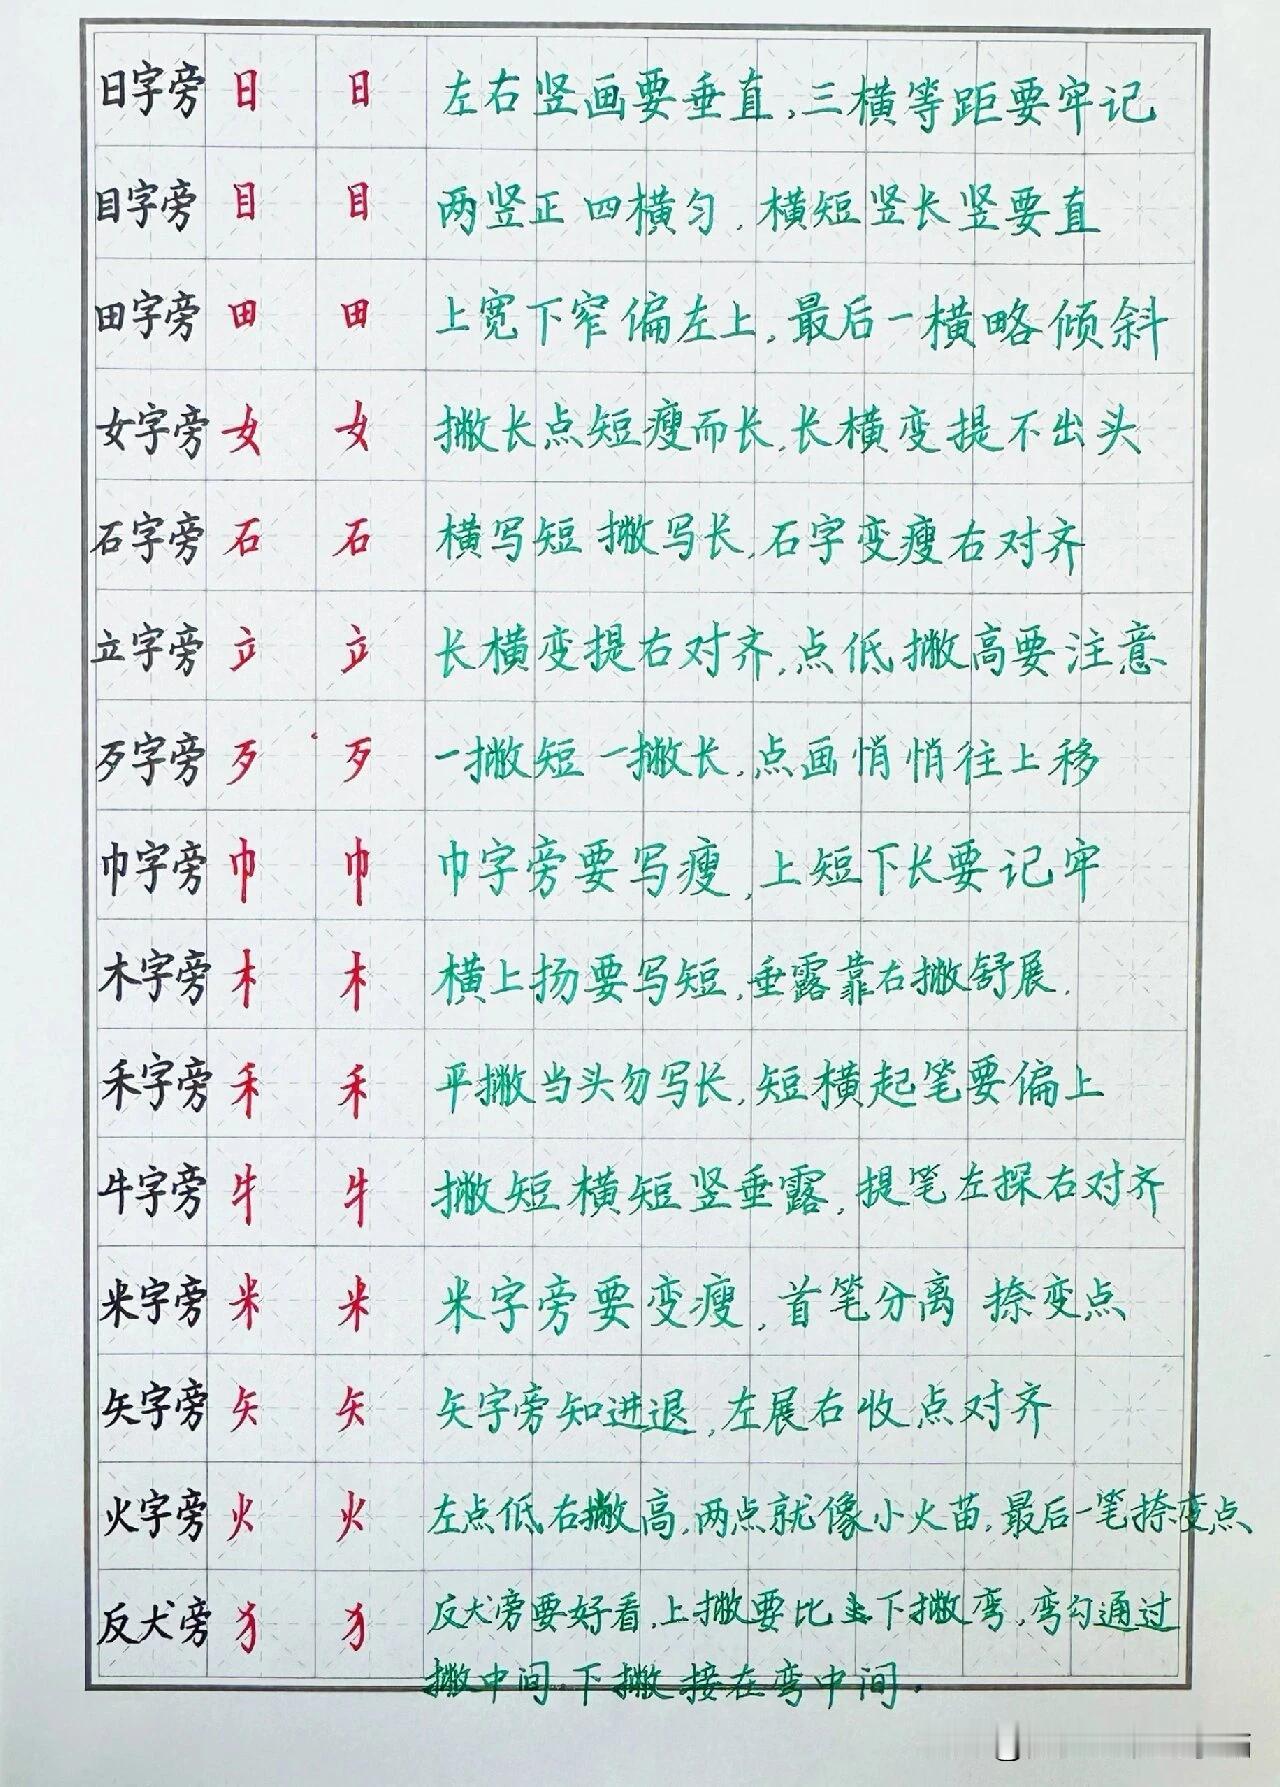 日字旁 日 日 左右竖画要垂直,三横等距要牢记
目字旁 目 目 两竖正四横匀,横短竖长竖要直
田字旁 田 田 上宽下窄偏左上,最后一横略倾斜
女字旁 女 女 撇长点短瘦而长,长横变提不出头
石字旁 石 石 横写短撇写长,石字变瘦右对齐
立字旁 立 立 长横变提右对齐,点低撇高要注意
歹字旁 歹 歹 一撇短一撇长,点画悄悄往上移
巾字旁 巾 巾 巾字旁要写瘦,上短下长要记牢
木字旁 木 木 横上扬要写短,垂露靠右撇舒展.
禾字旁 禾 禾 平撇当头勿写长,短横起笔要偏上
牛字旁 牜 牜 撇短横短竖垂露,提笔左探右对齐
米字旁 米 米 米字旁要变瘦,首笔分离 捺变点
矢字旁 矢 矢 矢字旁知进退,左展右收点对齐
火字旁 火 火 左点低右撇高,两点就像小火苗,最后一笔捺变点
反犬旁 犭 犭 反犬旁要好看,上撇要比下撇弯,弯勾通过
撇中间.下撇接在弯中间.